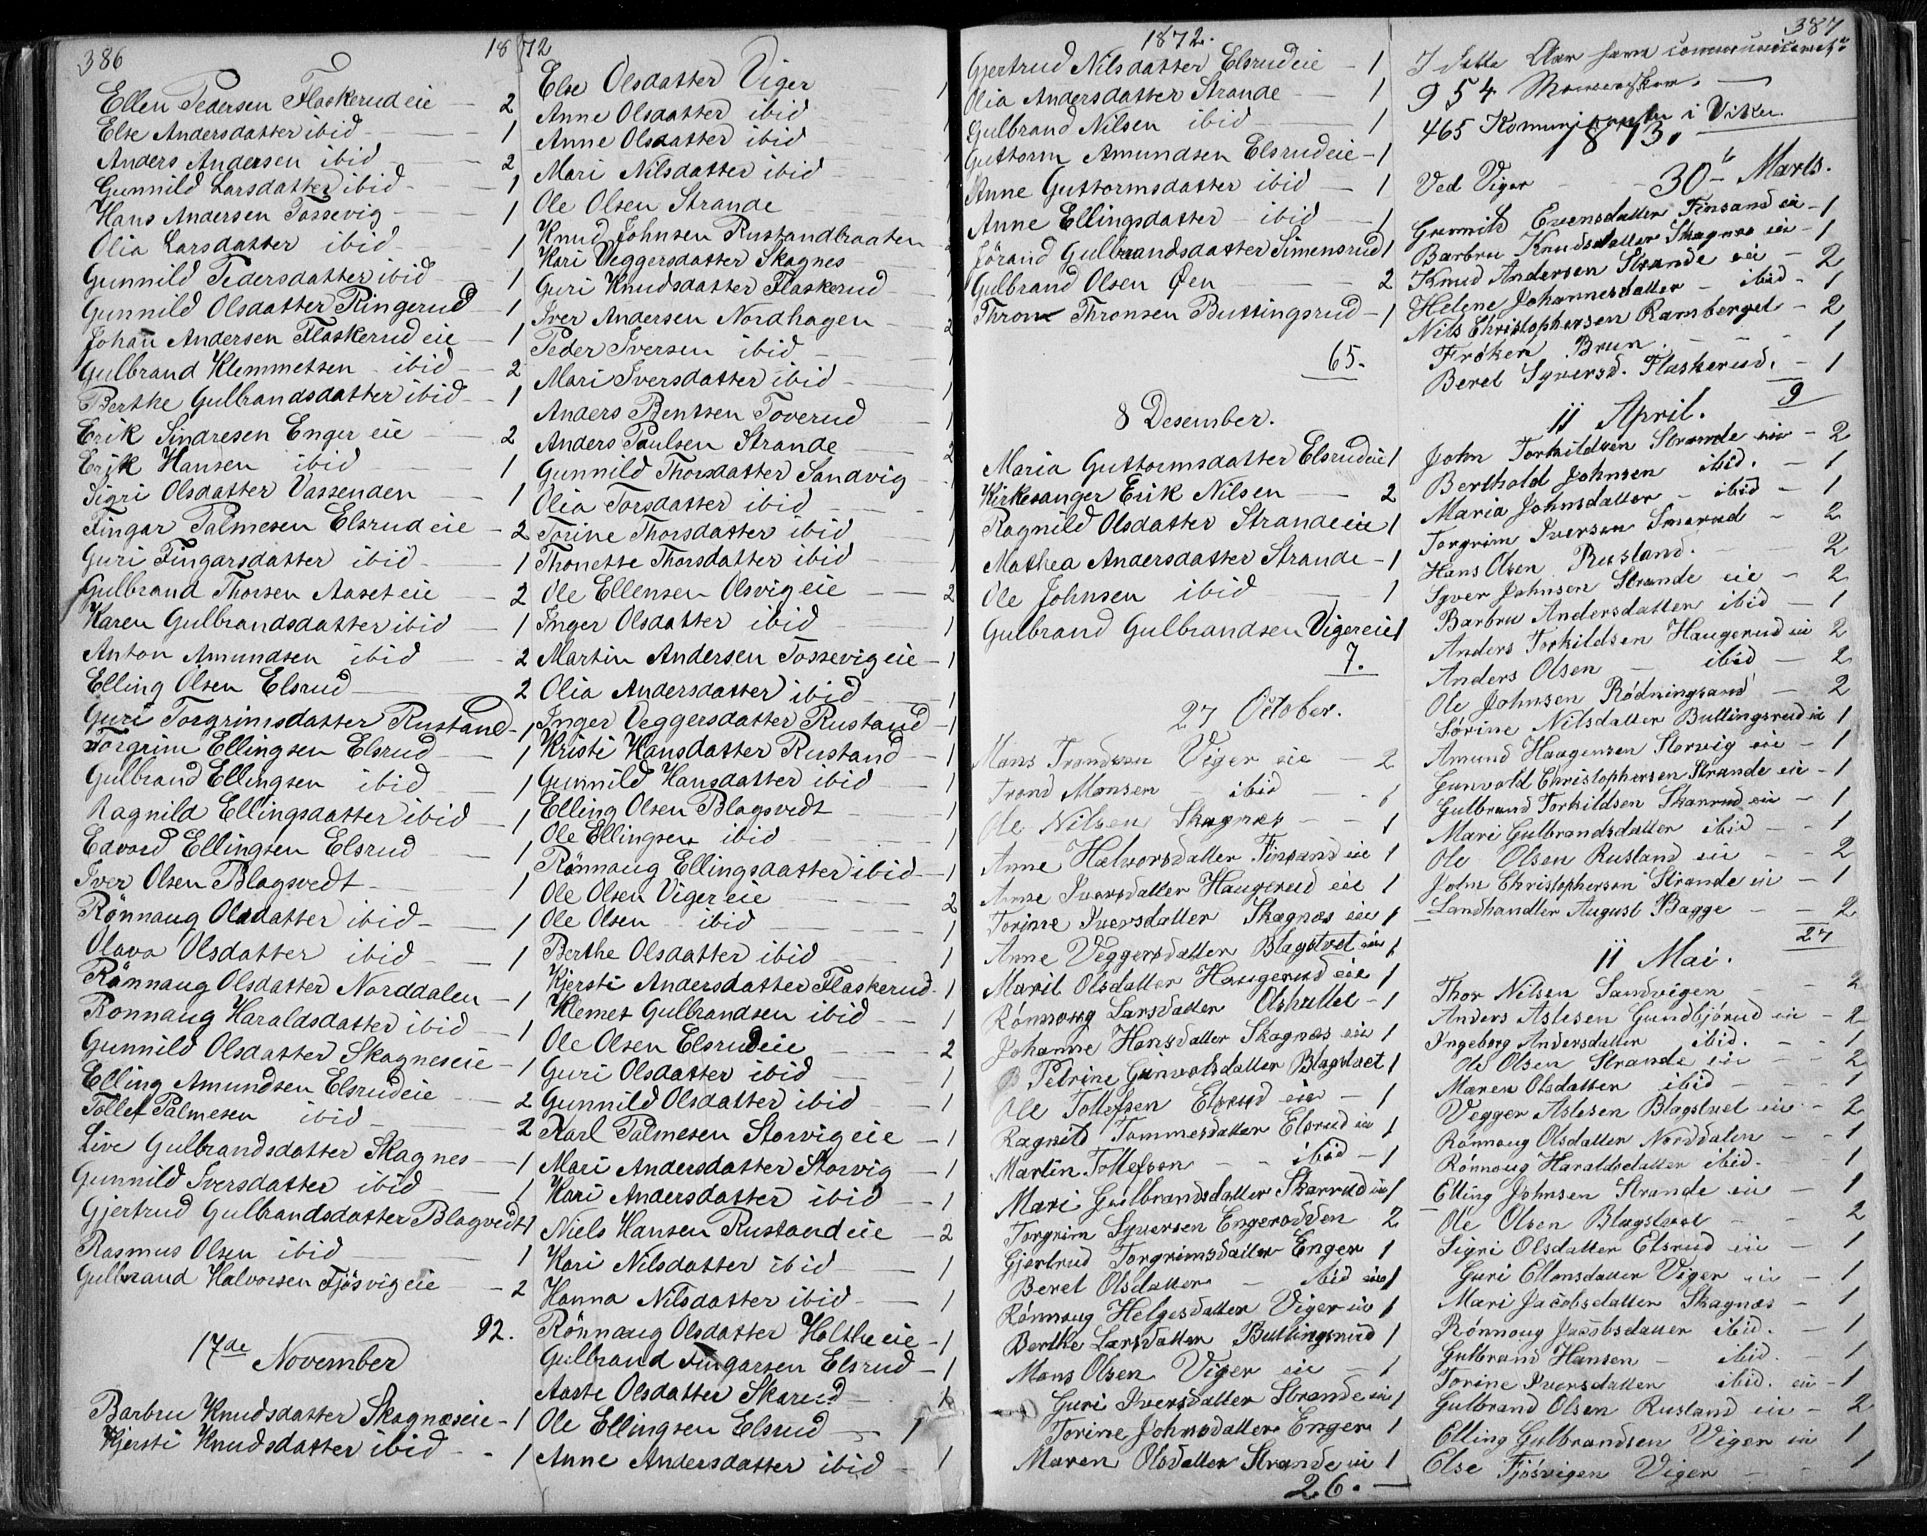 386
1872
Ellen Pedersen Flaskerud eie — 2
Else Andersdatter ibid — 1
Anders Andersen ibid — 2
Gunnild Larsdatter ibid — 1
Hans Andersen Tossevig — 1
Olia Larsdatter ibid — 1
Gunnild Pedersdatter ibid — 1
Gunnild Olsdatter Ringerud — 1
Johan Andersen Flaskerud eie — 1
Gulbrand Klemmetsen ibid — 2
Berthe Gulbrandsdatter ibid — 1
Erik Sindresen Enger eie — 2
Erik Hansen ibid — 1
Sigri Olsdatter Vassenden — 1
Fingar Palmesen Elsrud eie — 2
Guri Fingarsdatter ibid — 1
Gulbrand Thorsen Aaset eie — 2
Karen Gulbrandsdatter ibid — 1
Anton Amundsen ibid — 2
Elling Olsen Elsrud — 2
Guri Torgrimsdatter Rustand — 1
Torgrim Ellingsen Elsrud — 1
Gulbrand Ellingsen ibid — 1
Ragnild Ellingsdatter ibid — 1
Edvard Ellingsen Elsrud — 1
Iver Olsen Blagsvedt — 1
Rönnaug Olsdatter ibid — 1
Olava Olsdatter ibid — 1
Rönnaug Olsdatter Norddalen — 1
Rönnaug Haraldsdatter ibid — 1
Gunnild Olsdatter Skagnes eie — 1
Elling Amundsen Elsrudeie — 2
Tollef Palmesen ibid — 2
Live Gulbrandsdatter Skagnes — 1
Gunnild Iversdatter ibid — 1
Gjertrud Gulbrandsdatter Blagsvedt 1
Rasmus Olsen ibid — 1
Gulbrand Halvorsen Fjösvig eie — 2
92.
17de November
Barbru Knudsdatter Skagnæseie — 1
Kjersti Knudsdatter ibid — 1
Else Olsdatter Viger — 1
Anne Olsdatter ibid — 1
Anne Olsdatter ibid — 1
Mari Nilsdatter ibid
Ole Olsen Strande
Knud Johnsen Rustandbraaten
Kari Veggersdatter Skagnes
Guri Knudsdatter Flaskerud — 1
Iver Andersen Nordhagen — 2
Peder Iversen ibid — 1
Mari Iversdatter ibid — 1
Anders Bentsen Toverud — 1
Anders Paulsen Strande — 2
Gunnild Thorsdatter Sandvig — 1
Olia Torsdatter ibid — 1
Torine Thorsdatter ibid — 1
Thonette Thorsdatter ibid — 1
Ole Ellensen Olsvig eie — 2
Inger Olsdatter ibid — 1
Martin Andersen Tossevig eie — 1
Olia Andersdatter ibid — 1
Inger Veggersdatter Rustand — 1
Kristi Hansdatter Rustand — 1
Gunnild Hansdatter ibid — 1
Elling Olsen Blagsvedt — 1
Ole Ellingsen ibid — 1
Rönnaug Ellingsdatter ibid — 1
Ole Olsen Viger eie — 2
Ole Olsen ibid — 1
Berthe Olsdatter ibid — 1
Kjersti Andersdatter Flaskerud 1
Klemet Gulbrandsen ibid — 1
Ole Olsen Elsrudeie — 2
Guri Olsdatter ibid — 1
Gunnild Olsdatter ibid — 1
Karl Palmesen Storvig eie — 1
Mari Andersdatter Storvig — 1
Kari Andersdatter ibid — 1
Niels Hansen Rustand eie — 2
Kari Nilsdatter ibid — 1
Hanna Nilsdatter ibid — 1
Rönnaug Olsdatter Holthe eie — 1
Gulbrand Fingarsen Elsrud — 1
Aaste Olsdatter Skarud
Ole Ellingsen Elsrud — 1
Anne Andersdatter ibid — 1
1872.
Gjertrud Nilsdatter Elsrudeie — 1
Olia Andersdatter Strande — 1
Gulbrand Nilsen ibid — 1
Guttorm Amundsen Elsrudeie — 1
Anne Guttormsdatter ibid — 1
Anne Ellingsdatter ibid — 1
Jörand Gulbrandsdatter Simensrud 1
Gulbrand Olsen Øen — 2
Thron Thronsen Buttingsrud — 1
65.
8 Desember.
Maria Guttormsdatter Elsrudeie 1
Kirkesanger Erik Nilsen — 2
Ragnild Olsdatter Strandeeie 1
Mathea Andersdatter Strande — 1
Ole Johnsen ibid — 1
Gulbrand Gulbrandsen Vigereie 1
7.
27 October.
Mons Trondsen Viger eie — 2
Trond Monsen ibid —
Ole Nilsen Skagnæs — 1
Anne Halvorsdatter Finsand eie 1
Anne Iversdatter Haugerud eie 1
Torine Iversdatter Skagnæs eie 1
Anne Veggersdatter Blagstvet eie 1
Marit Olsdatter Haugerud eie 1
Rönnoug Larsdatter Olshullet — 1
Johanne Hansdatter Skagnæs eie 1
Petrine Gunvolsdatter Blagstvet 1
Ole Tollefsen Elsrud eie — 1
Ragnild Tommesdatter Elsrud eie 1
Martin Tollefson — ibid — 1
Mari Gulbrandsdatter Skarrud eie 1
Torgrim Syversen Engerodden 2
Gjertrud Torgrimsdatter Enger 1
Beret Olsdatter — ibid eie 1
Rønnoug Helgesdatter Viger eie 1
Berthe Larsdatter Buttingsrud 1
Mons Olsen Viger eie — 1
Guri Iversdatter Strande eie 1
Torine Johnsdatter Enger 1
Maren Olsdatter Strande eie 1
26. —
387
I dette Aar have communiceret
954 Mennesker. —
465 Komunikanter i Viker
1873.
Ved Viger — 30te Marts.
Gunnild Evensdatter Finsand eie — 1
Barbru Knudsdatter Skagnæs eie — 1
Knud Andersen Strande eie — 2
Helene Johannesdatter — ibid. 1
Nils Christophersen Ramberget — 2
Frøken Brun. — 1
Beret Syversd. Flaskerud. — 1
9
11 April.
John Torkildsen Strande eie — 2
Berthold Johnsen ibid. — 1
Maria Johnsdatter — ibid — 1
Torgrim Iversen Smerud — 2
Hans Olsen Rustand. — 2
Syver Johnsen Strande eie — 2
Barbru Andersdatter ibid — 1
Anders Torkildsen Haugerud eie 2
Anders Olsen — ibid — 2
Ole Johnsen Rødningsand — 2
Sørine Nilsdatter Buttingsrud eie 1
Amund Haagensen Storvig eie — 1
Gunvold Christophersen Strande eie — 1
Gulbrand Torkildsen Skarrud eie — 1
Mari Gulbrandsdatter ibid — 1
Ole Olsen Rustand eie — 2
John Christophersen Strande eie — 1
Landhandler August Bagge — 2
27
11 Mai.
Thor Nilsen Sandvigen — 2
Anders Aslesen Gundbjørud eie — 2
Ingeborg Andersdatter ibid. — 1
Ole Olsen Strande eie — 2
Maren Olsdatter ibid — 1
Vegger Aslesen Blagstvet eie — 2
Rönnoug Olsdatter Norddalen — 1
Rönnoug Haraldsdatter ibid. — 1
Elling Johnsen Strande eie — 1
Ole Olsen Blagstvet — 2
Sigri Olsdatter Elsrud eie — 1
Guri Ellensdatter Viger eie — 1
Mari Jacobsdatter Skagnæs — 1
Rönnoug Jacobsdatter ibid. — 1
Gulbrand Hansen — ibid. 1
Torine Iversdatter ibid. eie — 1
Gulbrand Olsen Rustand eie — 2
Elling Gulbrandsen Viger eie 1
Else Fjösvigen Viger — 1